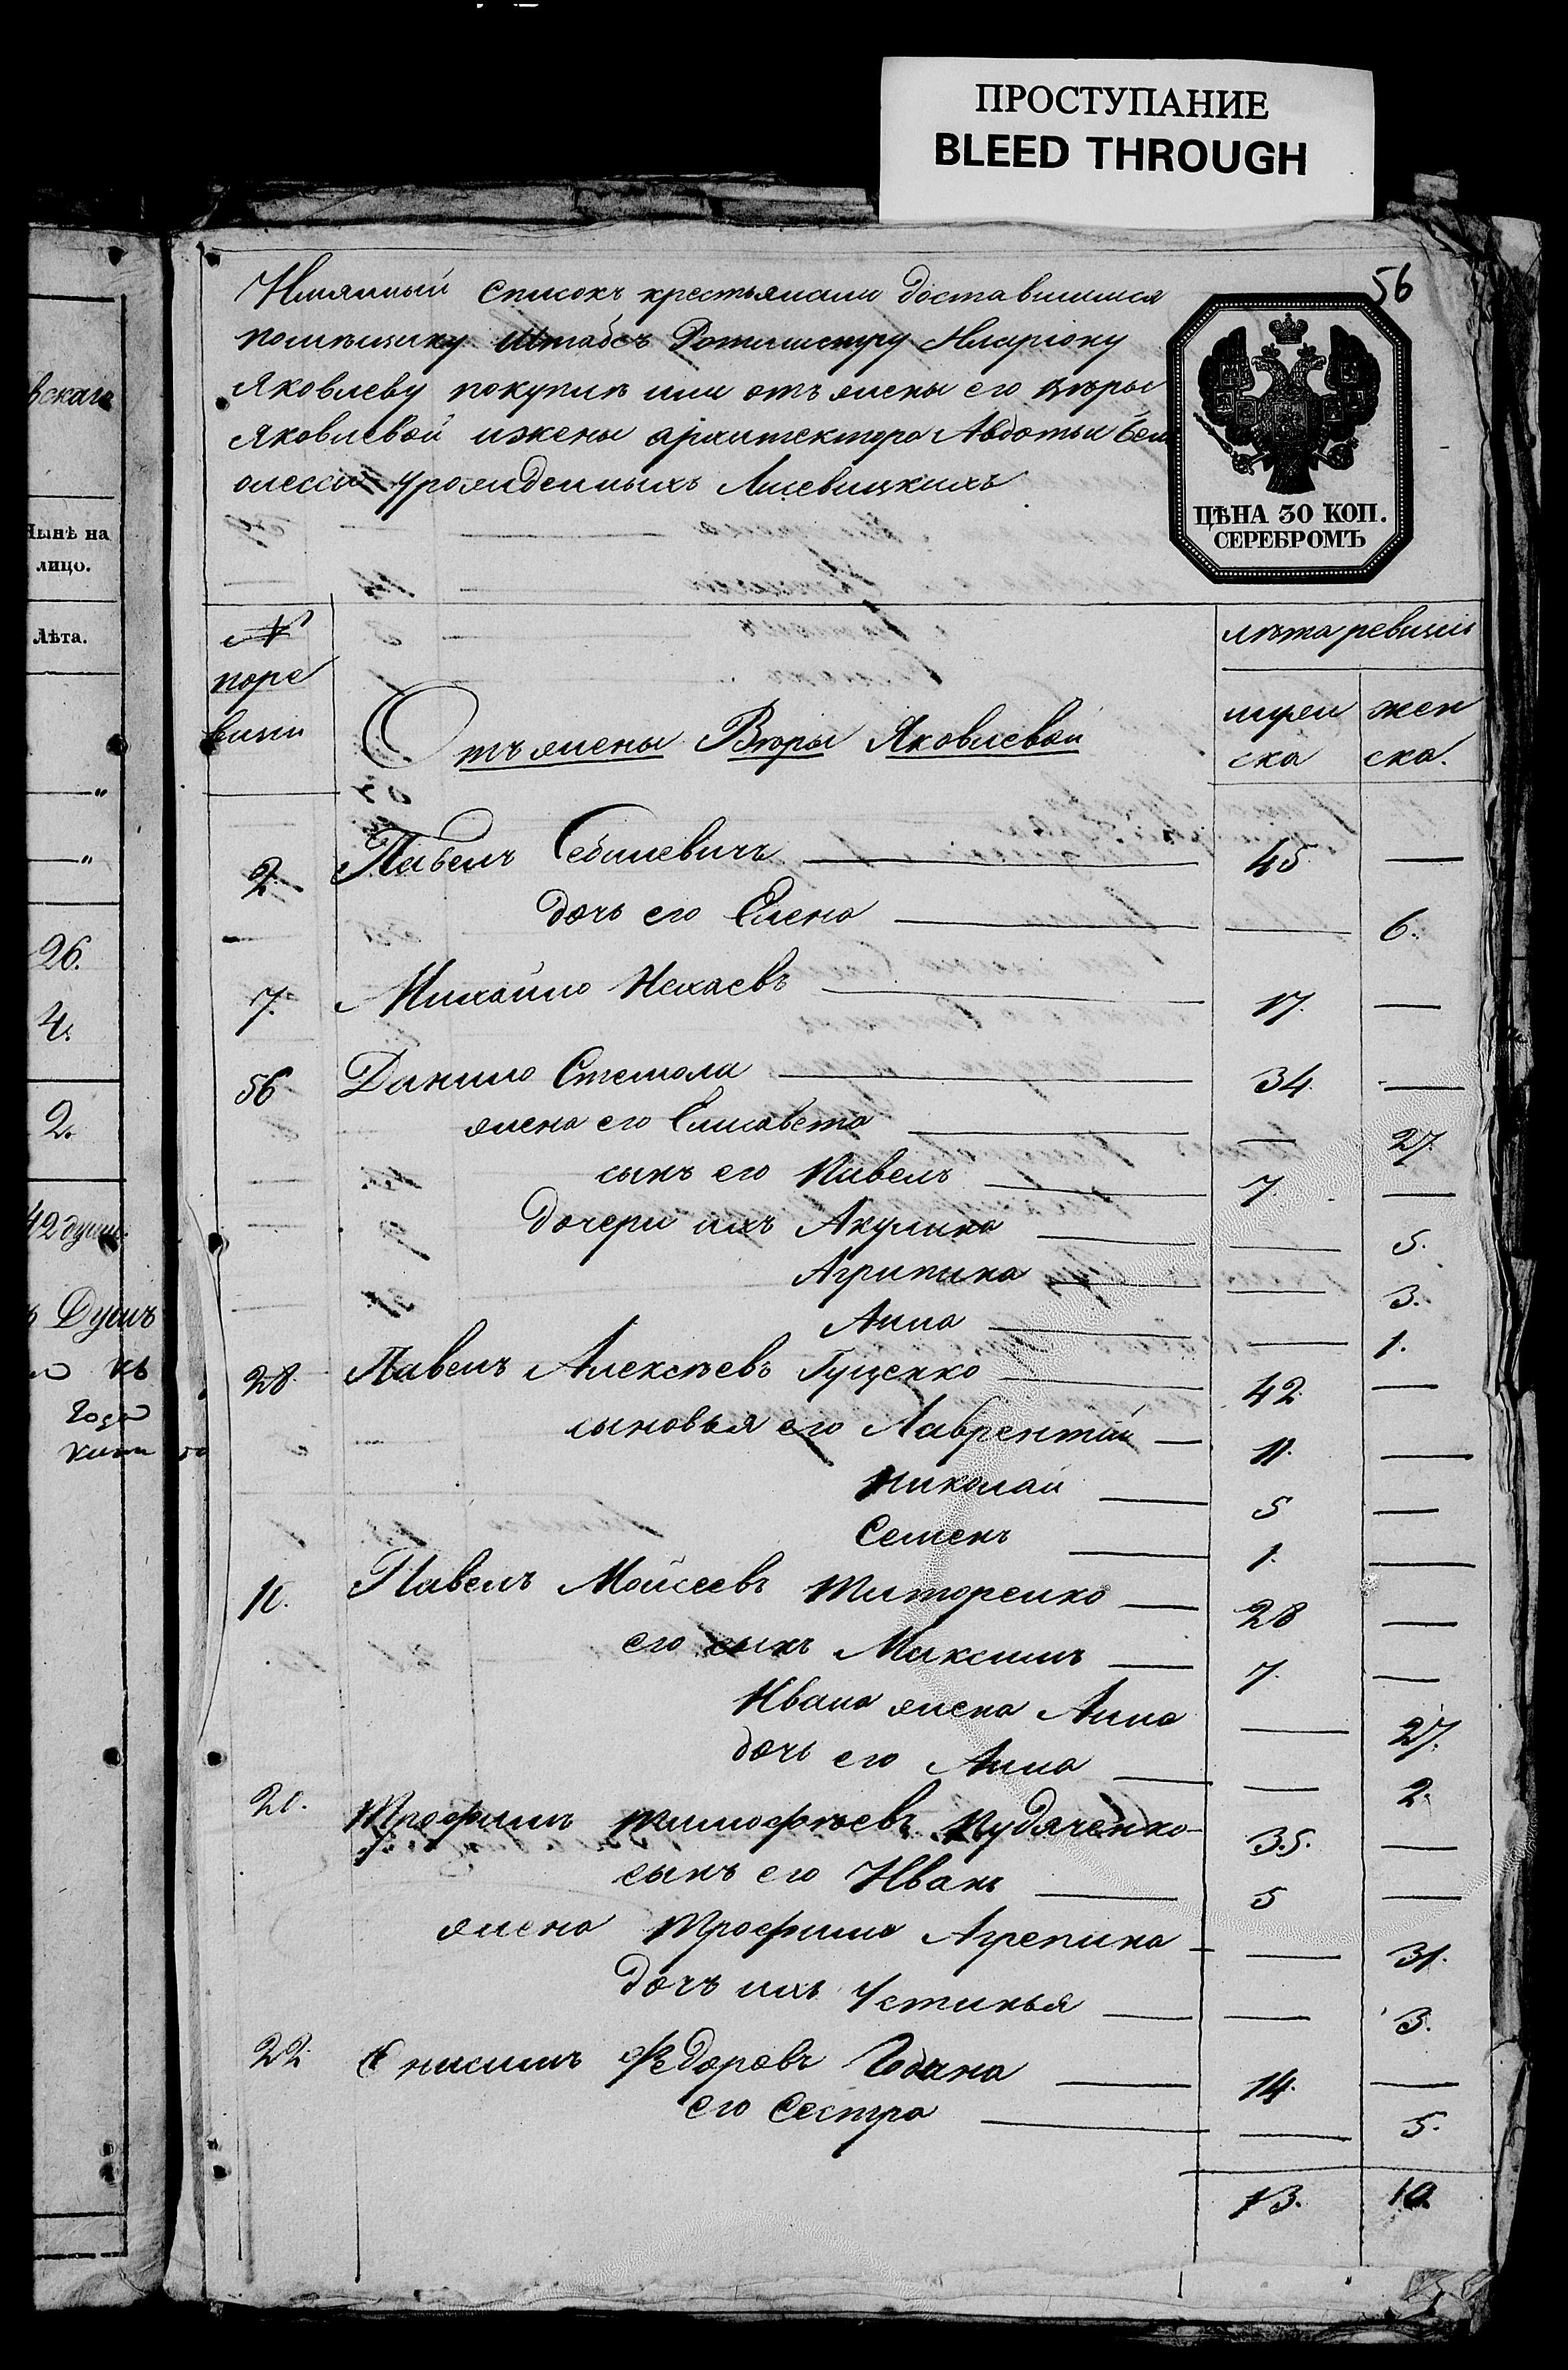 ПРОСТУПАНИЕ
BLEED THROUGH
56
Имянный списокъ крестьянамъ доставшимся
помѣщику Штабсъ Ротмистру Иларіону
Яковлеву покупкѣ ими отъ жены его Вѣры
Яковлевой и жены архитектора Авдотьи
урожденныхъ
ЦѢНА 30 КОП.
СЕРЕБРОМЪ
№
поре
визіи
лѣта ревизіи
Отъ жены Вѣры Яковлевой
мужеска
женска.
2. Павелъ 45 —
дочь его Елена — 6.
7. Михайло Нехаевъ 17. —
56 Данило Стемпла 34. —
жена его Елисавета — 27.
сынъ его Павелъ 7. —
дочери ихъ Акулина — 5.
Агрипина — 3.
Анна — 1.
28. Павелъ Алексѣевъ Гуценко 42. —
сыновья его Лаврентій 11. —
Николай 5 —
Семенъ 1. —
Павелъ Мойсеевъ Титоренко 28 —
его сынъ Максимъ 7. —
Ивана жена Анна — 27.
дочь его Анна — 2.
20. Трофимъ Тимофѣевъ Кудяченко 35. —
сынъ его Иванъ 5 —
жена Трофима Агрепина — 31.
дочь ихъ Устинья — 3.
22 Онисимъ Федоровъ 14. —
его сестра — 5.
13. 10
вскаго
Нынѣ на
лицо.
Лѣта.
—"
—"
26.
4.
2.
42 души.
Душъ
къ
года